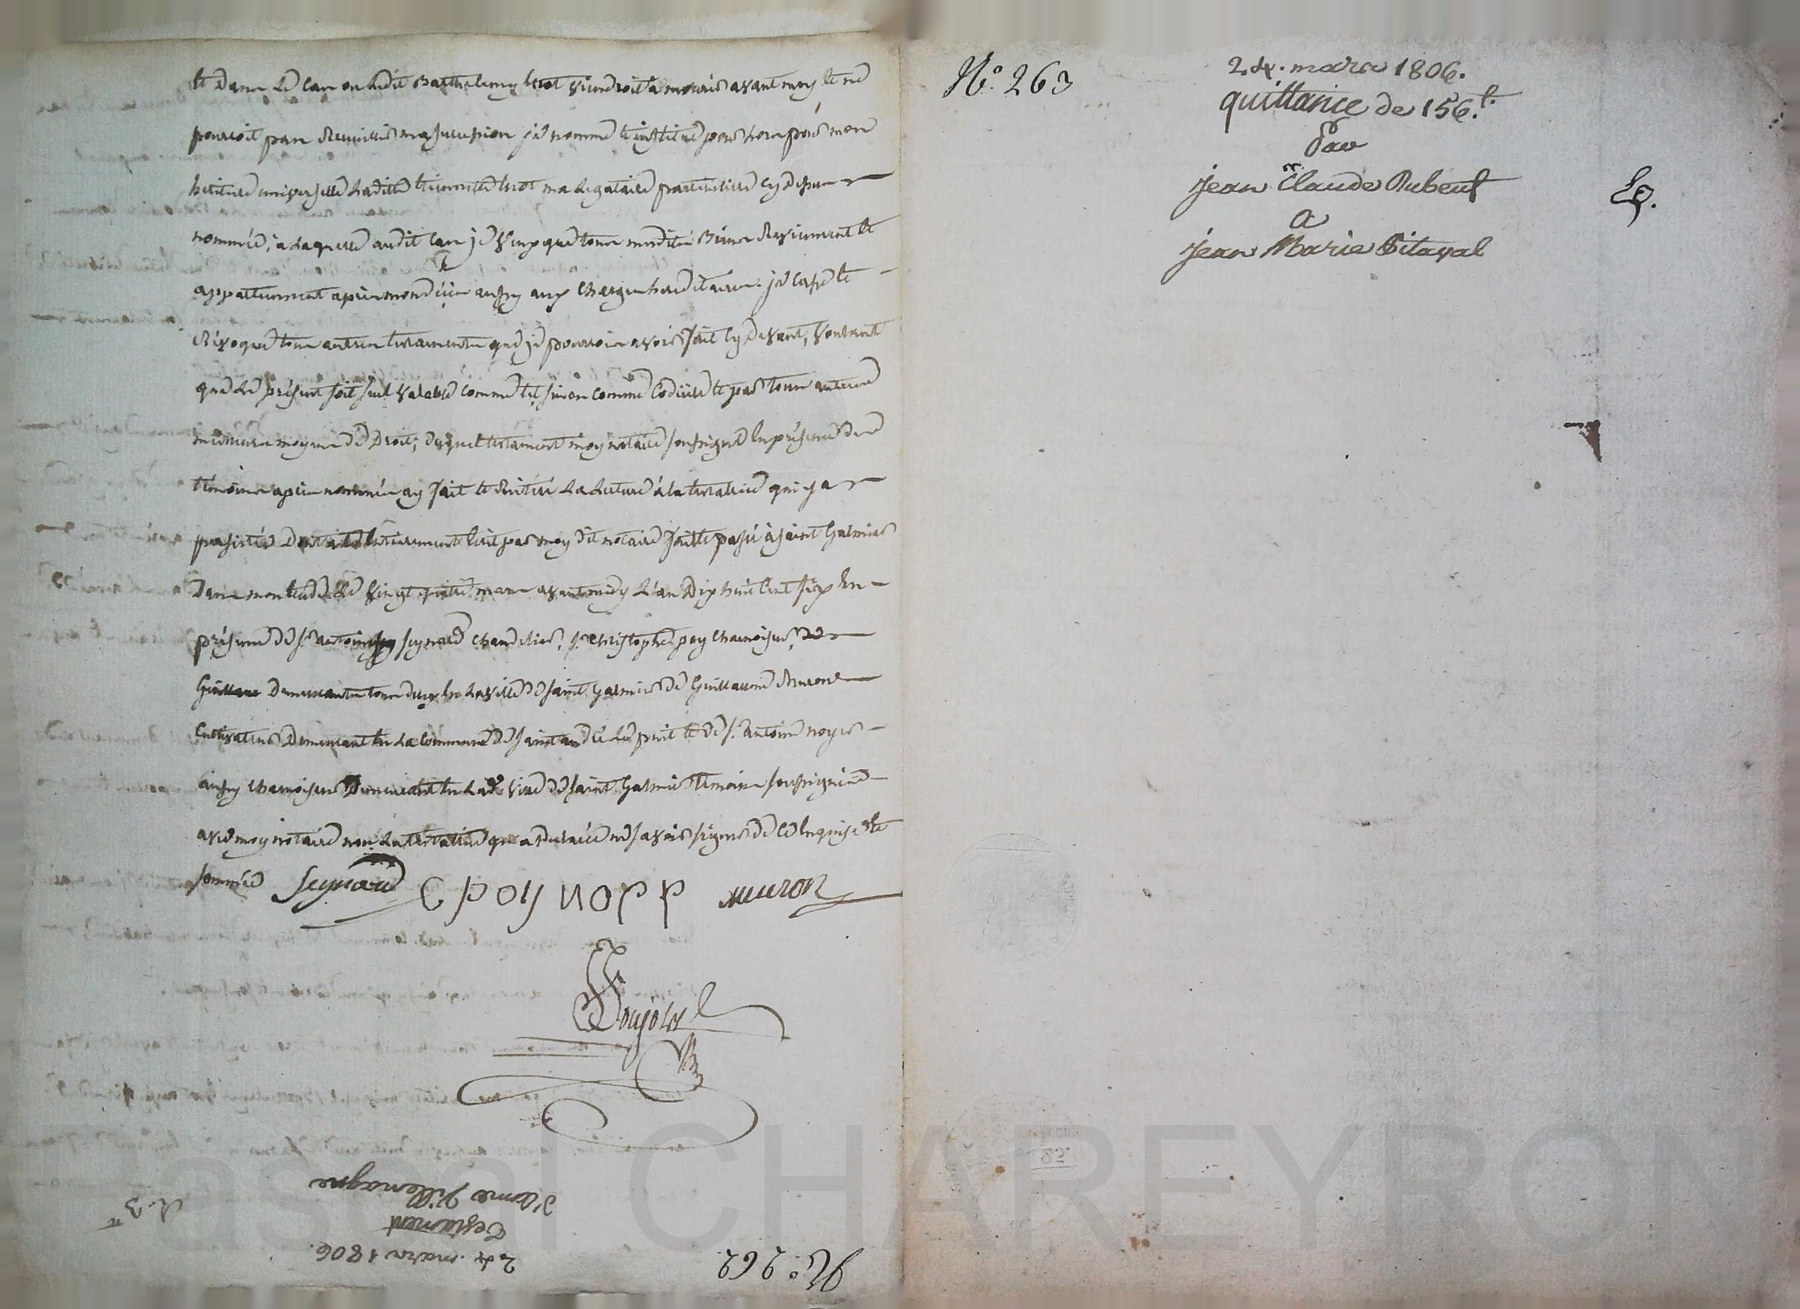 et Dans Le Cas ou Ledit Barthelemy viendroit a mourir avant moy et ne
pourroit pas Recueillir ma succession je nomme et institue pour lors pour mon
heritiere universelle Laditte ma Legataire particuliere cy dessus
nommée, a Laquelle audit Cas je veux que tous mesdits Biens Reviennent et
appartiennent apres mon deces aussy aux Charges hereditaires. je Casse et
Révoque tous autres testaments que je pourrois avoir fait cy devant, voulant
que Le présent soit seul valable comme tel sinon comme Codicile et par tous autres
meilleurs moyens de Droit; Duquel testament moy notaire soussigné En présence des
témoins apres nommés ay fait et Réitéré La Lecture a la testatrice qui y a
persisté testament Écrit par moy dit notaire fait et passé à Saint Galmier
Dans mon Etude Le Vingt quatre mars avant midy L'an Dix huit Cent Six En
présence de Sr. antoine Seynard Chandelier, Sr. Christophe poy Chamoiseur, de
Guillau Demeurants tous deux En La ville de Saint Galmier de Guillaume
Cultivateur Demeurant En La Commune de Saint andré Le puit et de Sr. Antoine noyer
aussy Chamoiseur Demeurant En Lad. Ville de Saint Galmier témoins soussignés
avec moy notaire non La testatrice qui a Déclaré ne savoir signer de Ce Enquise et
sommée Seynard C POY NOER muron
Poujols
N.° 262.
24. mars 1806.
Testament
d'Anne Villemagne
N.° 263
24. mars 1806.
quittance de 156 f.
Par
Jean Claude Rubeuf
a
Jean Marie Pitaval
Ep.
25.
Pascal CHAREYRON